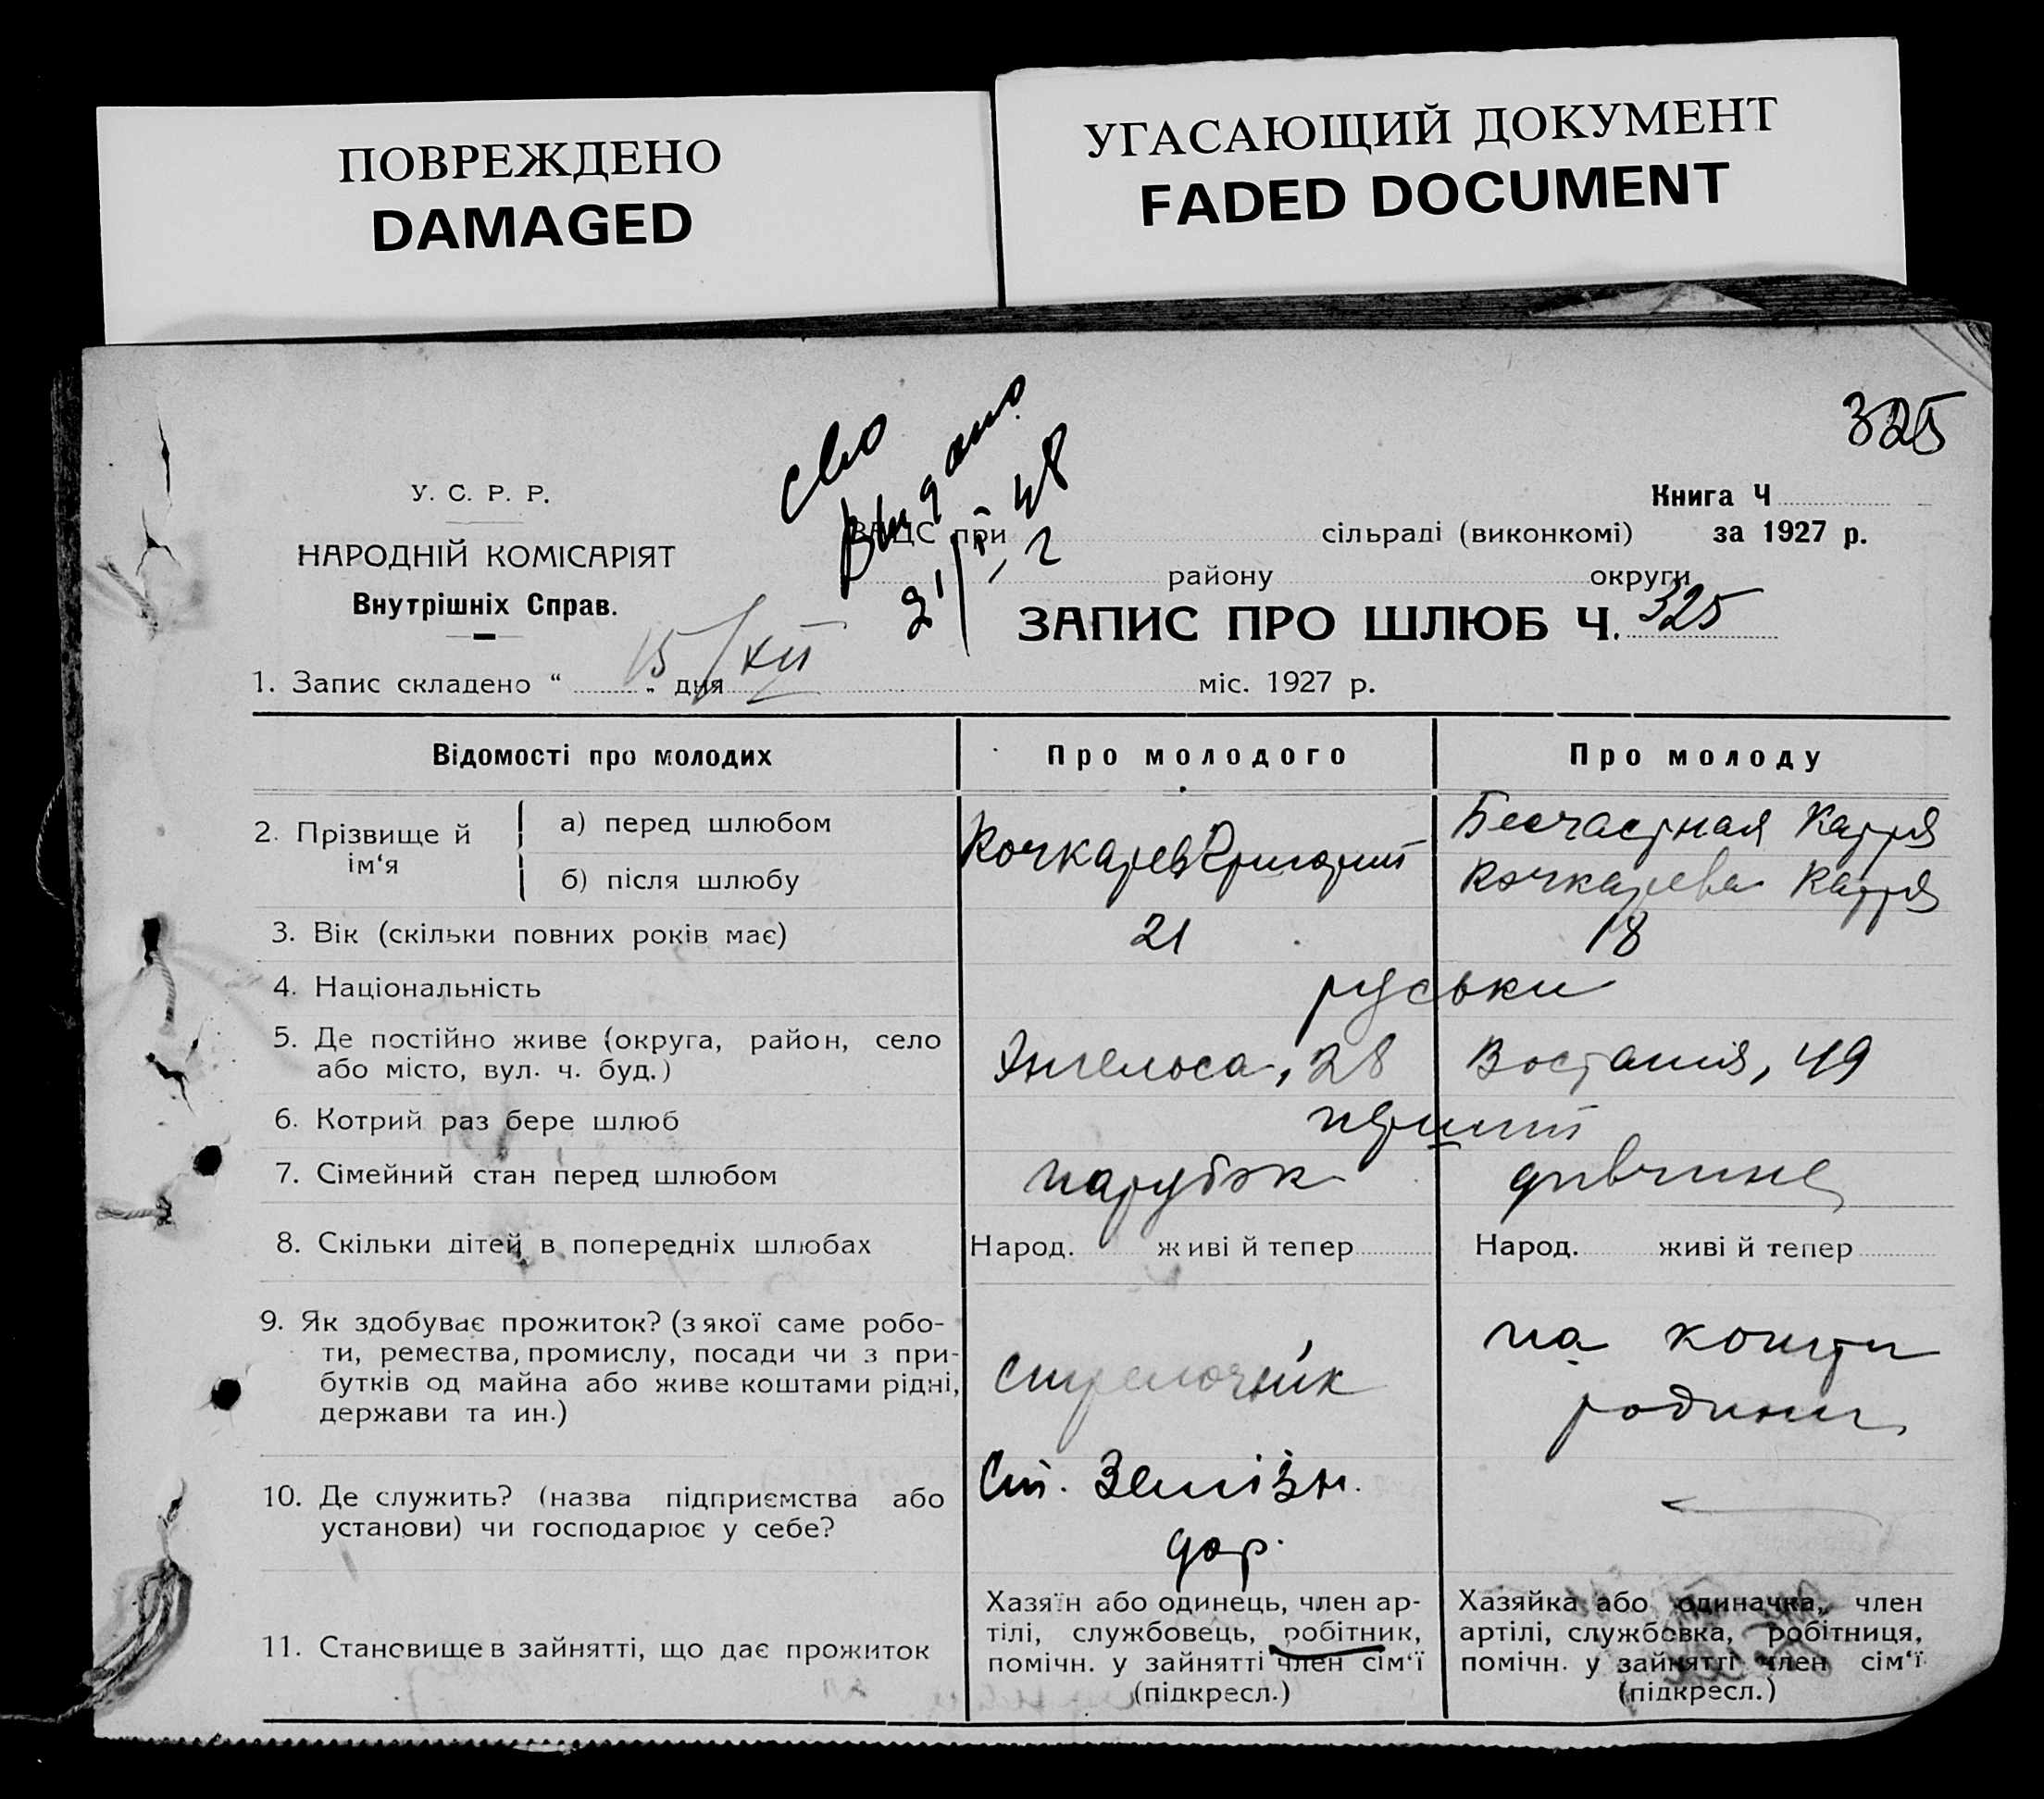 ПОВРЕЖДЕНО
DAMAGED
УГАСАЮЩИЙ ДОКУМЕНТ
FADED DOCUMENT
325
сво
Выдано
21/ 48
У. С. Р. Р.
НАРОДНІЙ КОМІСАРІЯТ
Внутрішніх Справ.
Книга Ч
ЗАЦС при сільраді (виконкомі) за 1927 р.
району округи
ЗАПИС ПРО ШЛЮБ Ч. 325
1. Запис складено “ 15/XII „ дня міс. 1927 р.
Відомості про молодих Про молодого Про молоду
2. Прізвище й ім‘я
а) перед шлюбом Кочкарев Григорий Бесчастная Катря
б) після шлюбу Кочкарева Катря
3. Вік (скільки повних років має) 21 18
4. Національність руськи
5. Де постійно живе (округа, район, село
або місто, вул. ч. буд.) Энгельса, 28 Востания, 49
6. Котрий раз бере шлюб перший
7. Сімейний стан перед шлюбом парубок дивчина
8. Скільки дітей в попередніх шлюбах Народ. живі й тепер Народ. живі й тепер
9. Як здобуває прожиток? (з якої саме робо-
ти, ремества, промислу, посади чи з при-
бутків од майна або живе коштами рідні,
держави та ин.)
стрелочник
на кошти
родини
10. Де служить? (назва підприємства або
установи) чи господарює у себе?
Ст. Залізн.
дор.
11. Становище в зайнятті, що дає прожиток
Хазяїн або одинець, член ар-
тілі, службовець, робітник,
помічн. у зайнятті член сім‘ї
(підкресл.)
Хазяйка або одиначка, член
артілі, службовка, робітниця,
помічн. у зайнятті член сім‘ї
(підкресл.)